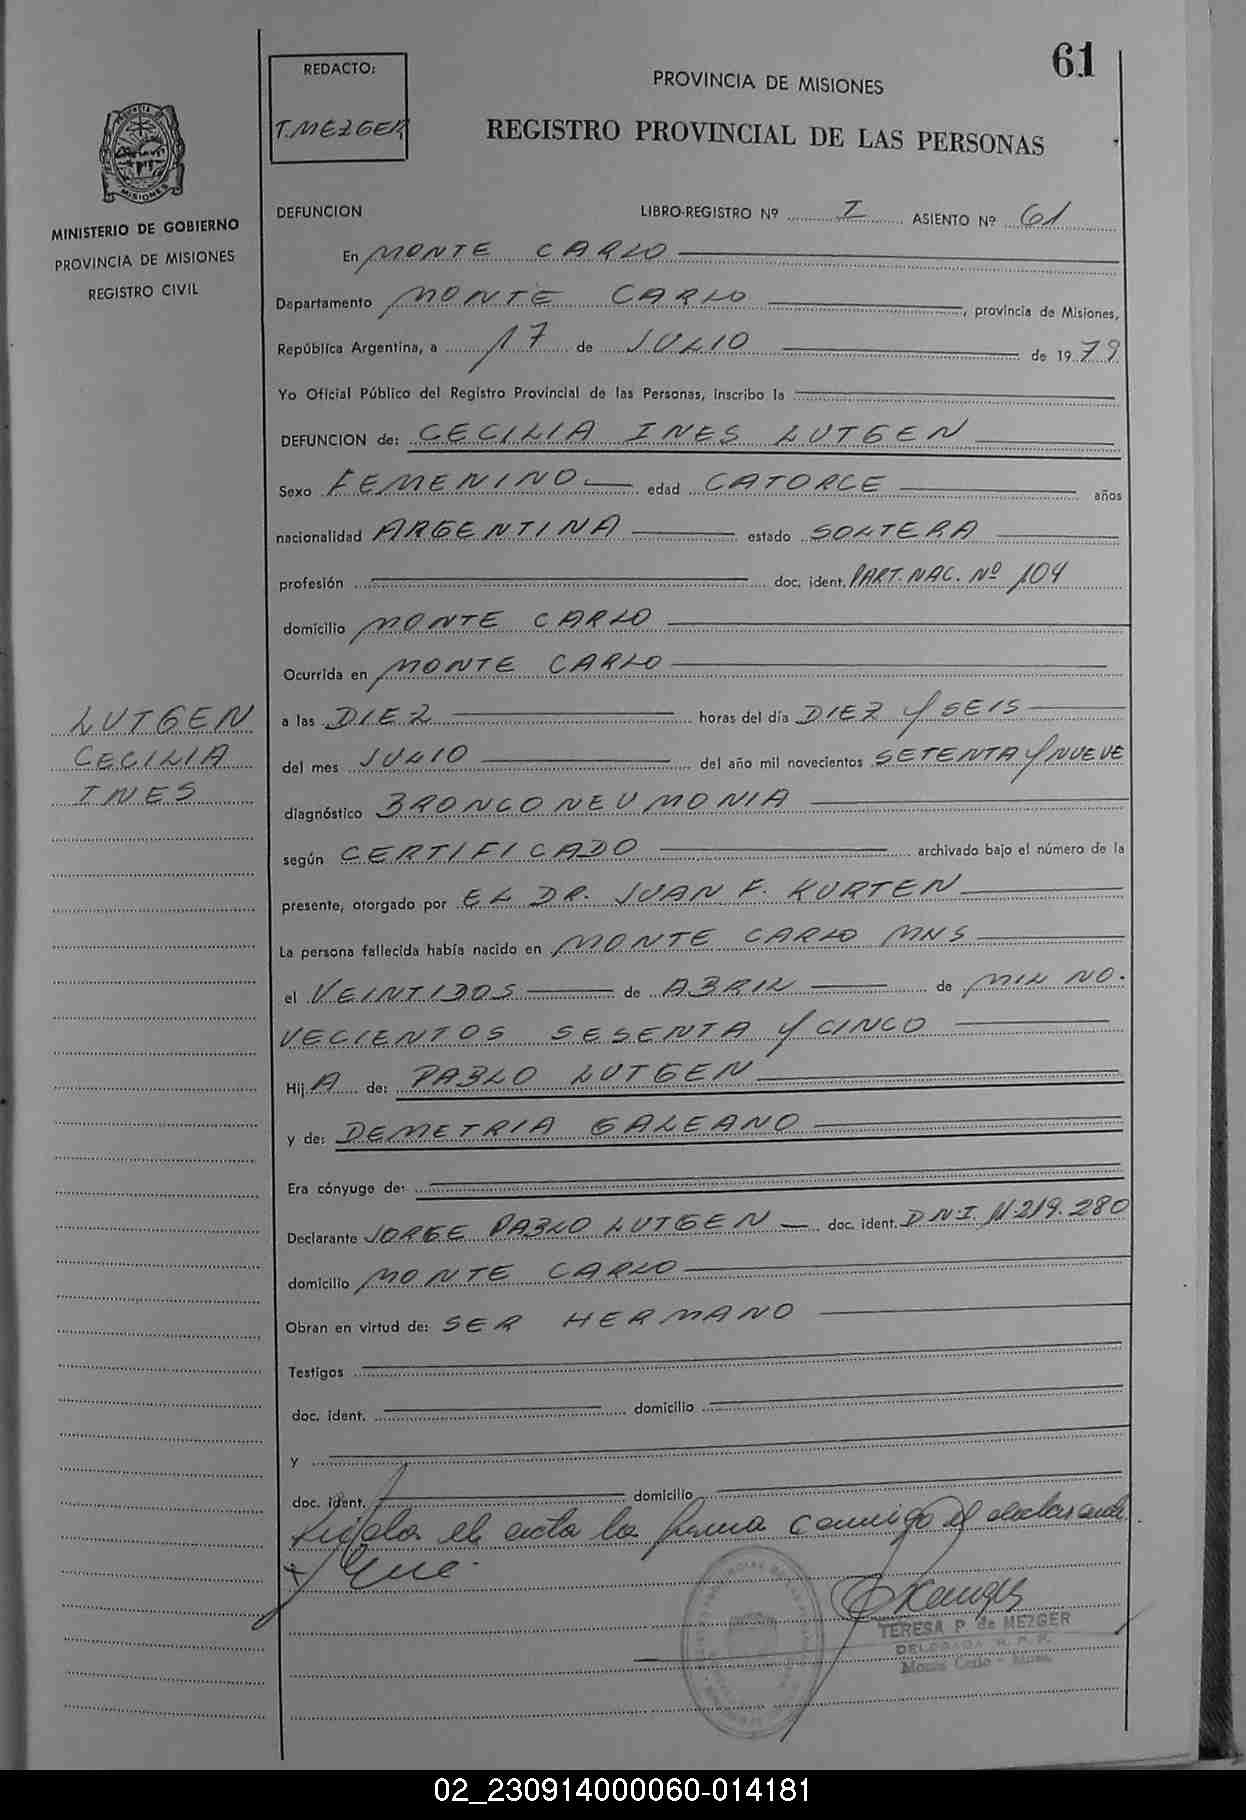 61
REDACTO:
T. MEZGER
PROVINCIA DE MISIONES
REGISTRO PROVINCIAL DE LAS PERSONAS
MISIONES
MINISTERIO DE GOBIERNO
PROVINCIA DE MISIONES
REGISTRO CIVIL
DEFUNCION LIBRO-REGISTRO Nº I ASIENTO Nº 61
En MONTE CARLO
Departamento MONTE CARLO, provincia de Misiones,
República Argentina, a 17 de JULIO de 1979
Yo Oficial Público del Registro Provincial de las Personas, inscribo la
DEFUNCION de: CECILIA INES LUTGEN
Sexo FEMENINO edad CATORCE años
nacionalidad ARGENTINA estado SOLTERA
profesión doc. ident. PART. NAC. Nº 104
domicilio MONTE CARLO
Ocurrida en MONTE CARLO
LUTGEN
CECILIA
INES
a las DIEZ horas del día DIEZ Y SEIS
del mes JULIO del año mil novecientos SETENTA Y NUEVE
diagnóstico BRONCONEUMONIA
según CERTIFICADO archivado bajo el número de la
presente, otorgado por EL DR. JUAN F. KURTEN
La persona fallecida había nacido en MONTE CARLO MNS
el VEINTIDOS de ABRIL de MIL NO-
VECIENTOS SESENTA Y CINCO
Hij A de: PABLO LUTGEN
y de: DEMETRIA GALEANO
Era cónyuge de:
Declarante JORGE PABLO LUTGEN doc. ident. D N I. 11.219.280
domicilio MONTE CARLO
Obran en virtud de: SER HERMANO
Testigos
doc. ident. domicilio
y
doc. ident. domicilio
Leida el acta la firma conmigo el declarante.
TERESA P. de MEZGER
DELEGADA R. P. P.
Monte Carlo - Mnes.
02_230914000060-014181